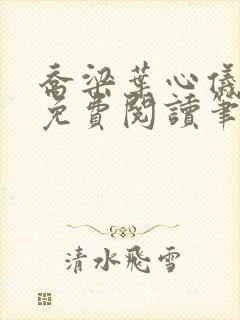 喬梁葉心儀
免費閱讀筆
清水飛雪